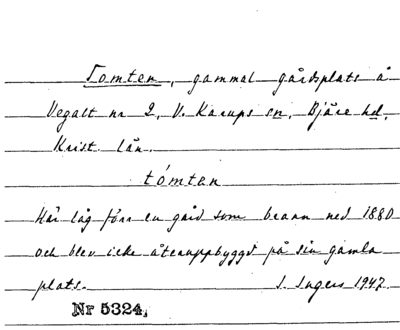 Tomten, gammal gårdsplats å
Vegalt nr 2, V. Karups sn, Bjäre hd,
Krist. län.
tómten
Här låg förr en gård som brann ned 1880
och blev icke återuppbyggd på sin gamla
plats. I. Ingers 1947
Nr 5324,